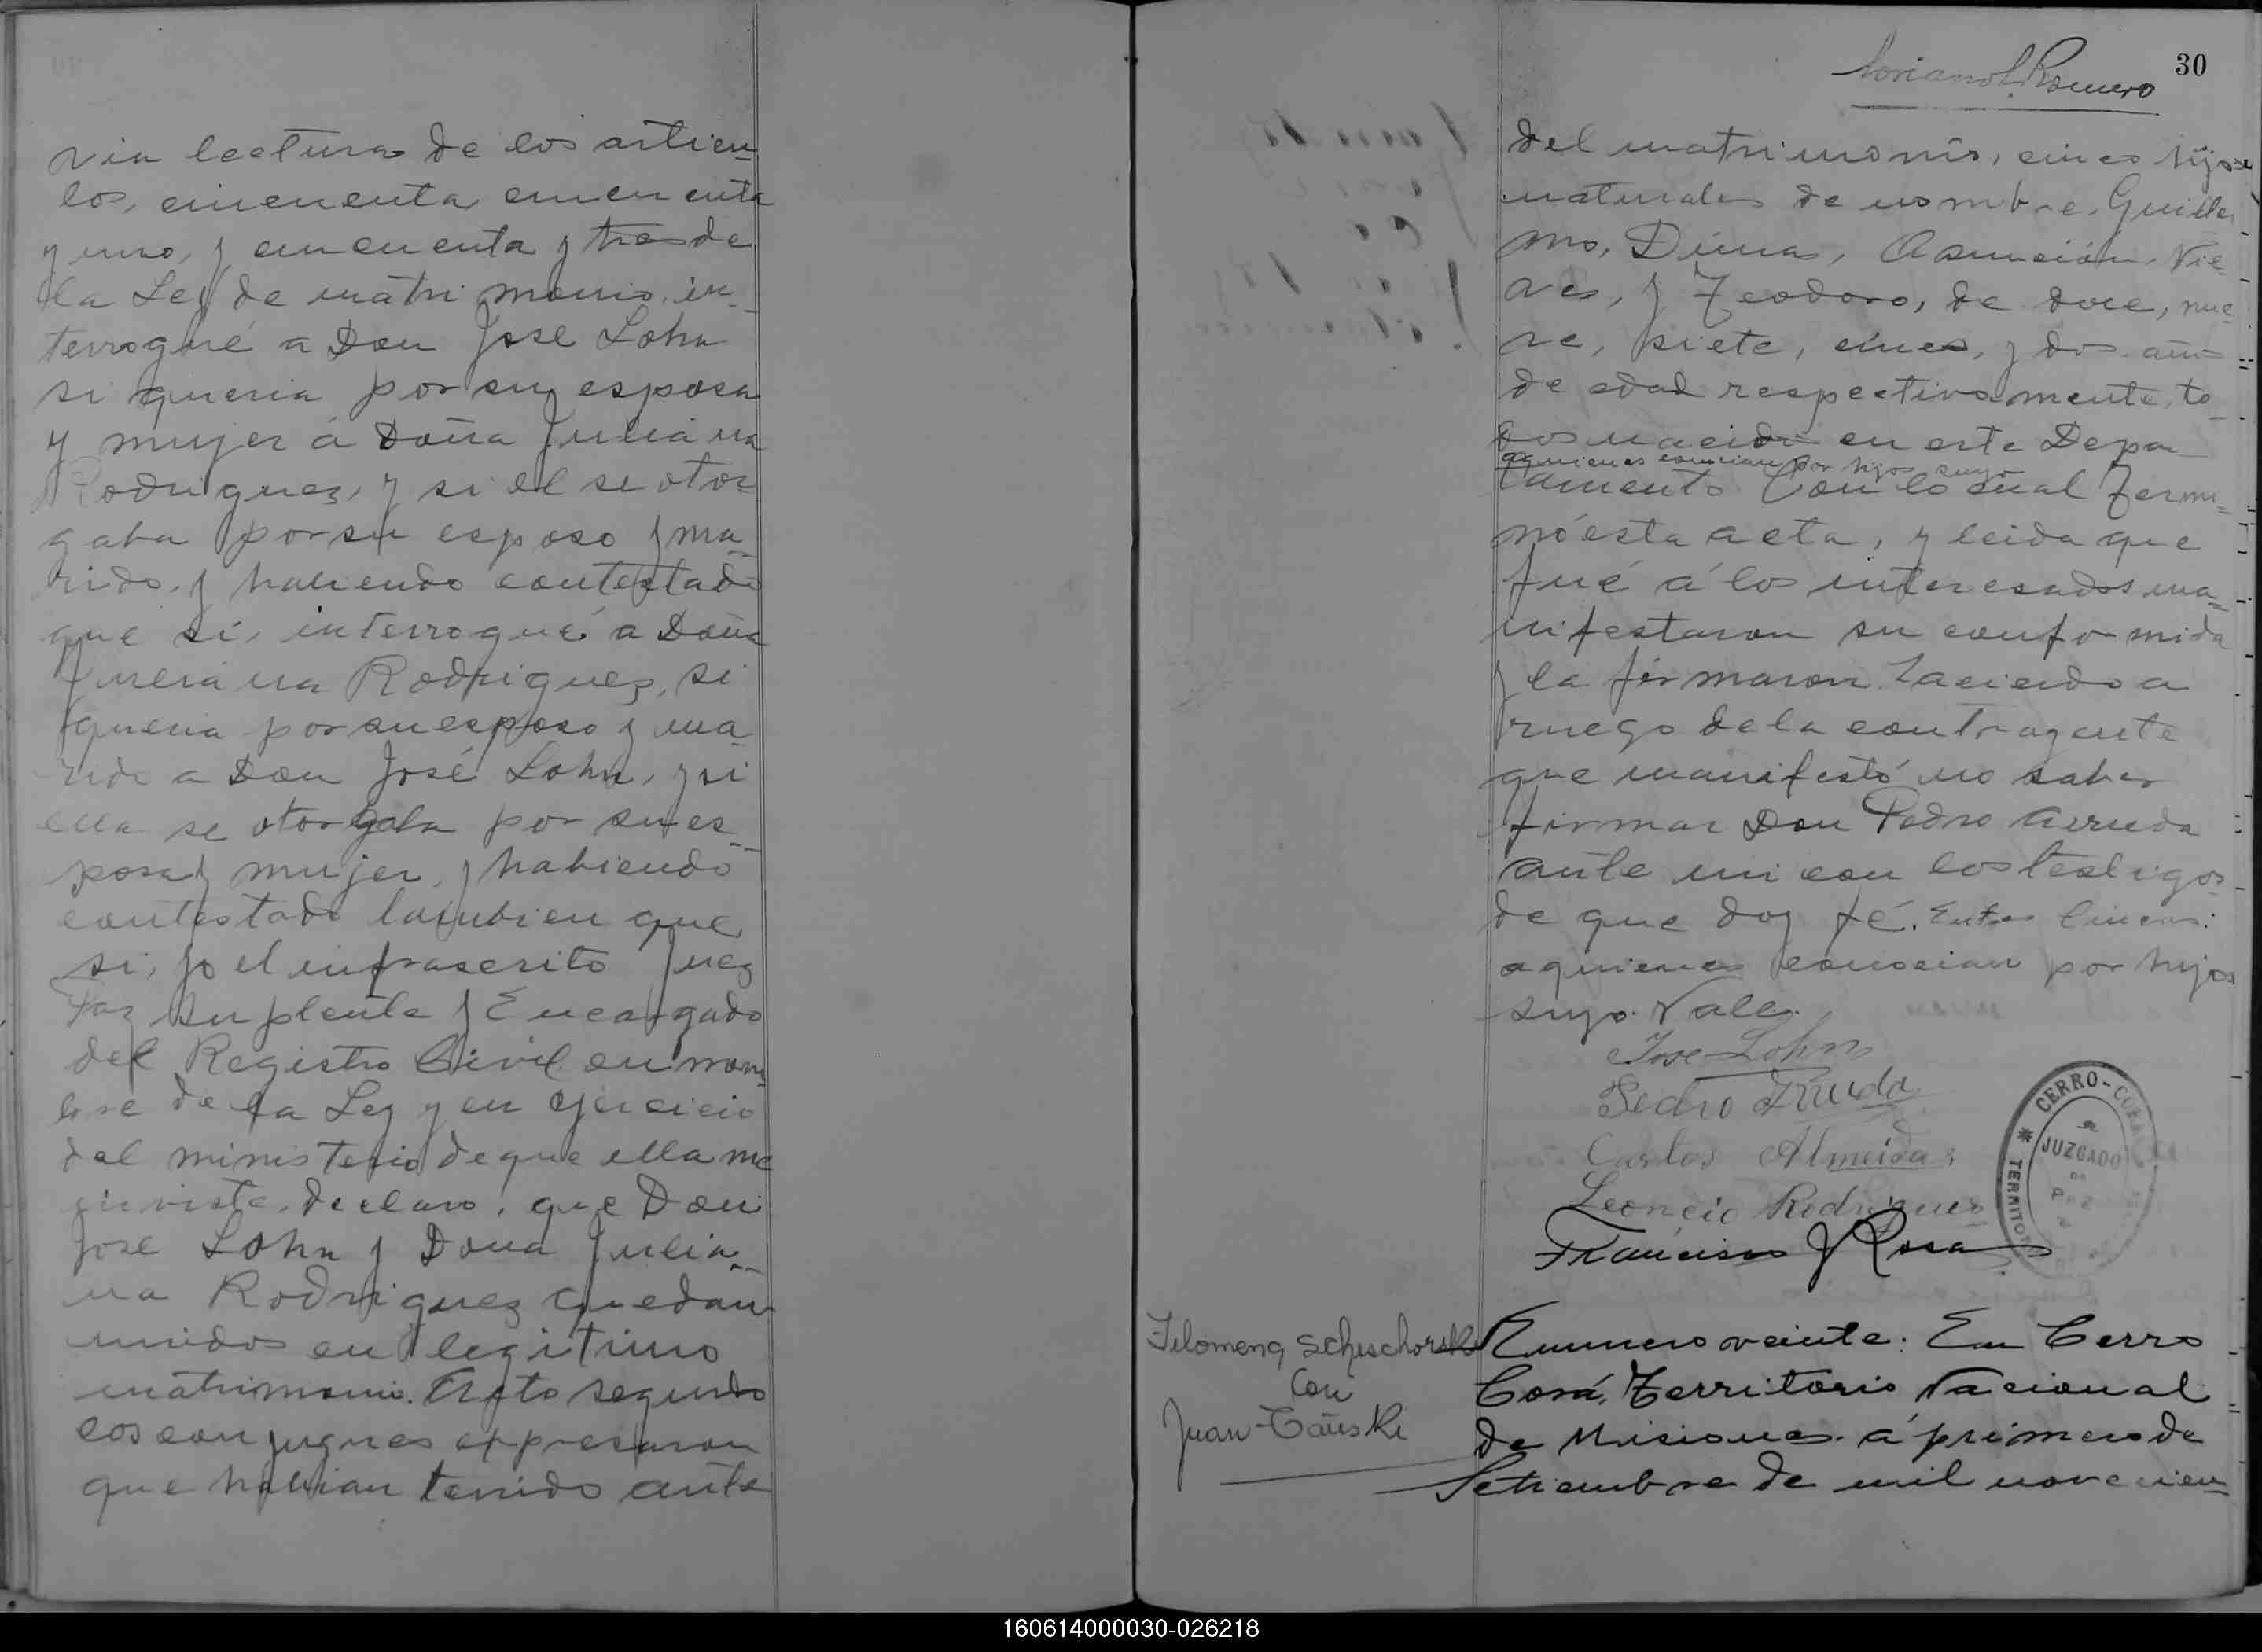 via lectura de los articu-
los, cincuenta cincuenta
y uno, y cincuenta y tres de
la Ley de matrimonio, in-
terrogué a Don José Lohn
si queria por su esposa
y mujer á Doña Juliana
Rodriguez, y si el se otor
gaba por su esposo y ma-
rido, y habiendo contestado
que si, interrogué a Doña
Juliana Rodriguez, si
queria por su esposo y ma
rido a Don José Lohn, y si
ella se otorgaba por su es-
posa y mujer, y habiendo
contestado tambien que
si, yo el infrascrito Juez
Paz Suplente y Encargado
del Registro Civil en nom-
bre de la Ley y en ejercicio
del ministerio de que ella me
inviste, declaro, que Don
José Lohn y Doña Julia-
na Rodriguez quedan
unidos en legitimo
matrimonio. Acto seguido
los conyugues expresaron
que habian tenido ante
30
Romero
del matrimonio, cinco hijos
naturales de nombre, Guiller
mo, Dina, Asunción, Nie
ves, y Teodoro, de doce, nue
ve, siete, cinco, y dos años
de edad respectivamente, to-
dos nacidos en este Depar
aquienes conocian por hijos suyo
tamento Con lo cual Termi-
nó esta acta, y leida que
fué á los interesados ma-
nifestaron su conformida
y la firmaron. haciendo a
ruego de la contrayente
que manifestó no saber
firmar Don Pedro Arruda
ante mi con los testigos
de que doy fé. Entre lineas:
aquienes conocian por hijos
suyo. Vale.
Jose Lohn
Pedro Aruda
Carlos Almeida
Leoncio Rodrigues
Francisco J Rosa
CERRO-CORÁ
JUZGADO
DE
PAZ
TERRITO
Filomena Scheschorski
Con
Juan Tañski
Numero veinte: En Cerro
Corá, Territorio Nacional
de Misiones á primero de
Setiembre de mil novecien-
160614000030-026218